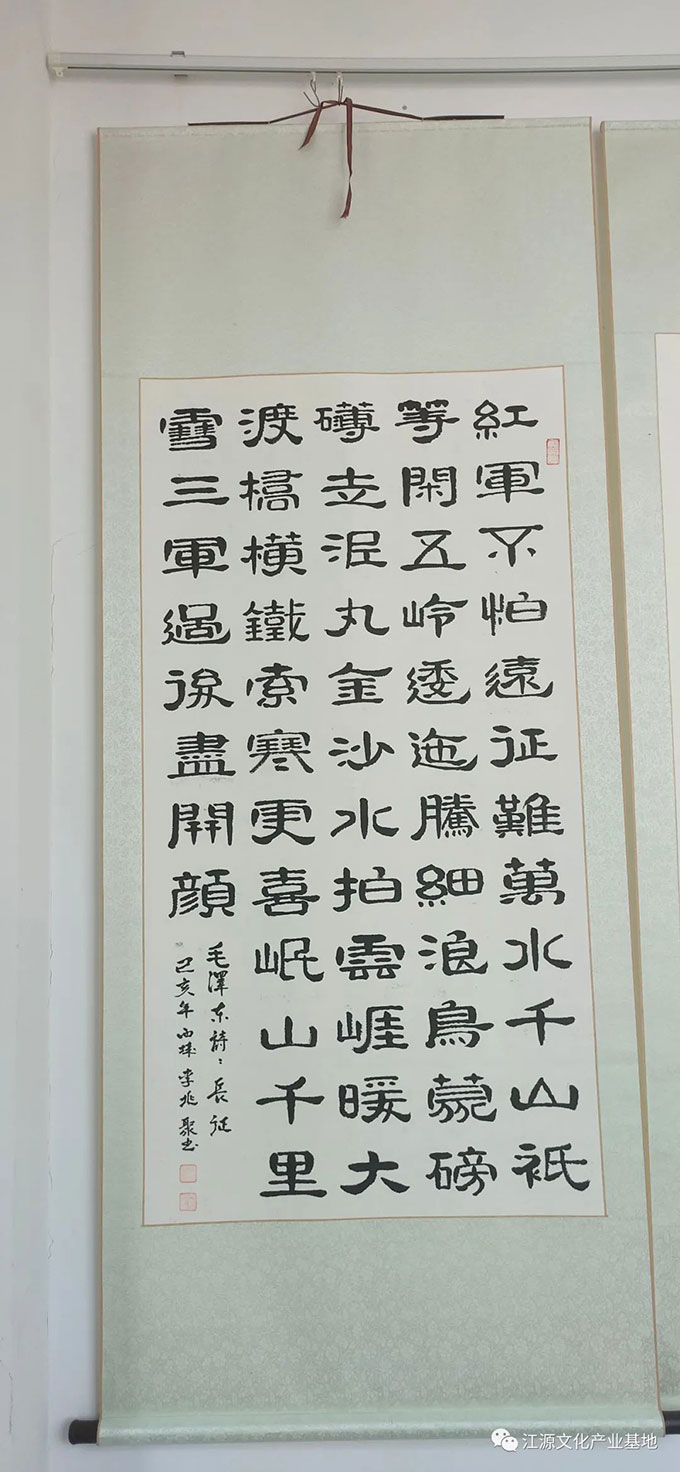 紅軍不怕遠征難萬水千山祇
等閑五岭逶迤騰細浪烏蒙磅
礴走泥丸金沙水拍雲崖暖大
渡橋橫鐵索寒更喜岷山千里
雪三軍過後盡開顔
毛澤東詩、長征
己亥年 李兆聚书
江源文化产业基地